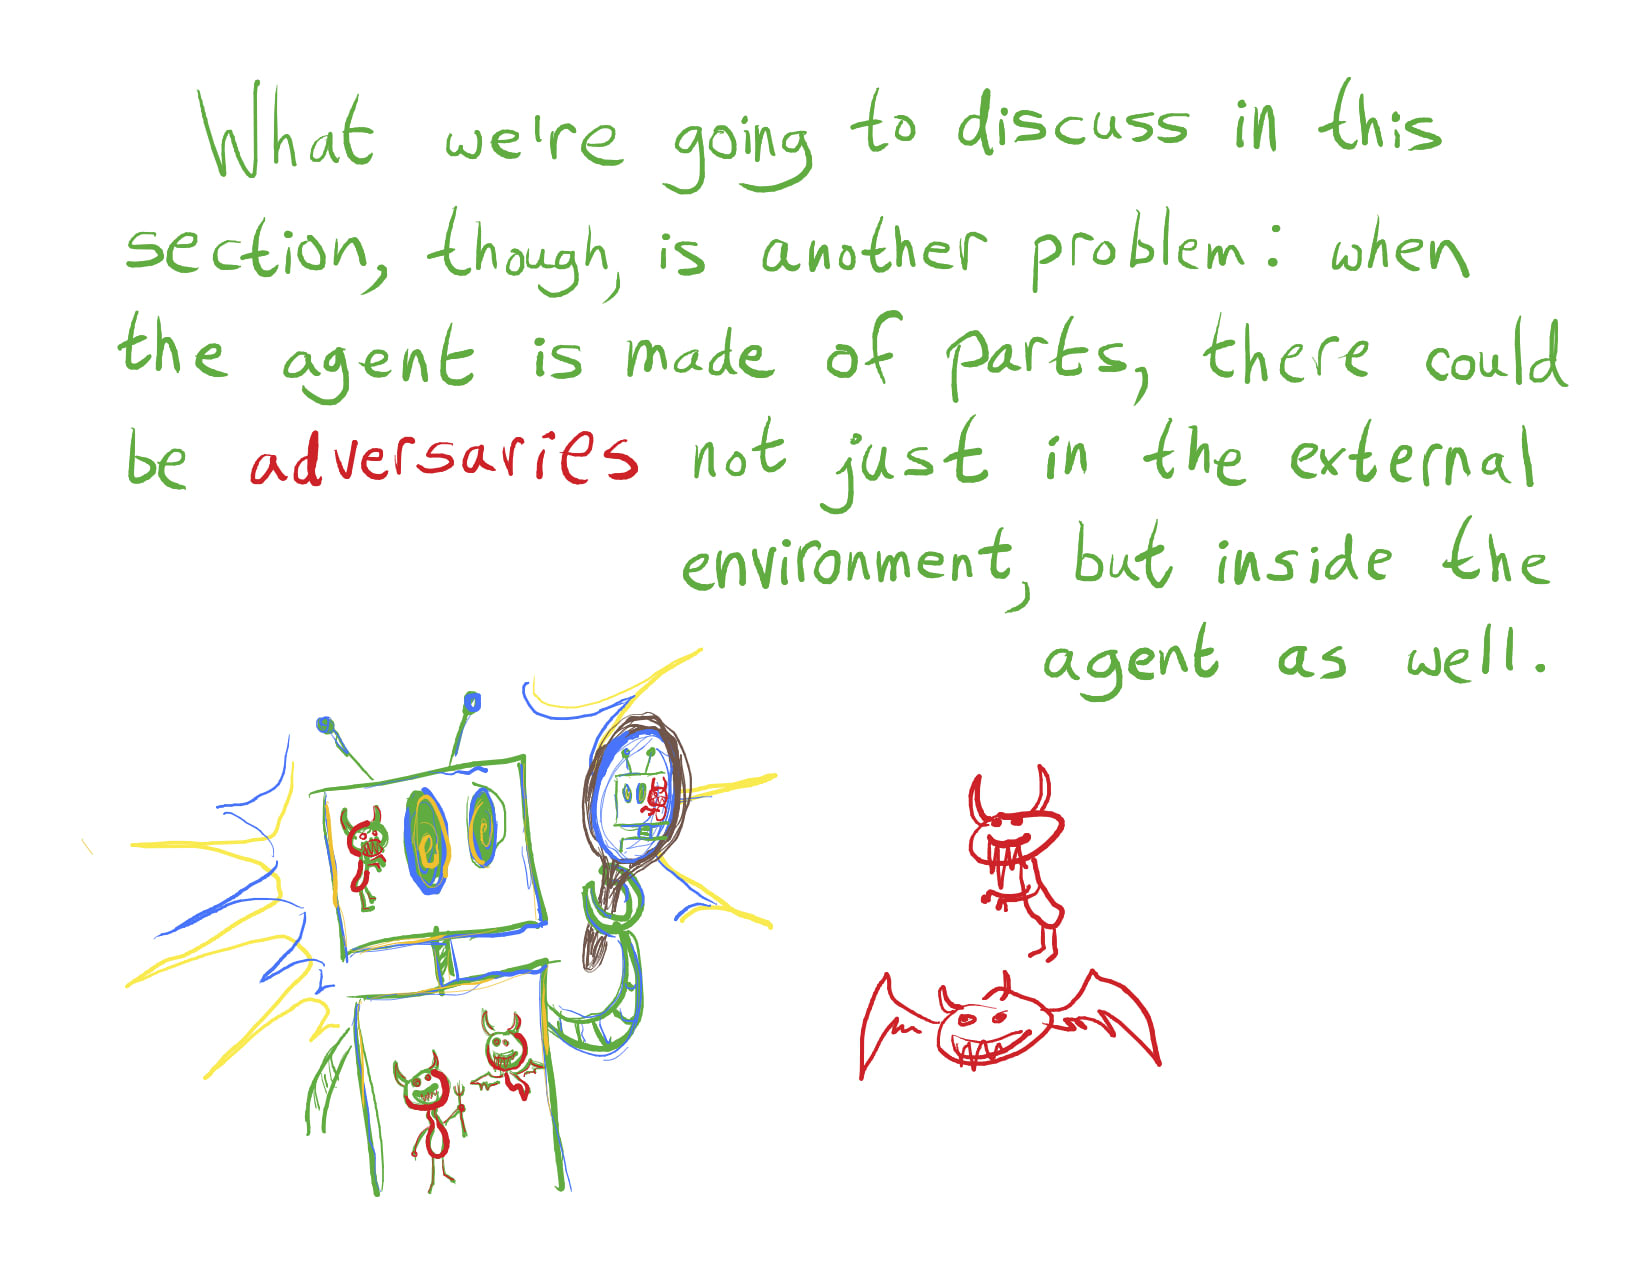 What we're going to discuss in this
section, though, is another problem: when
the agent is made of parts, there could
be adversaries not just in the external
environment, but inside the
agent as well.